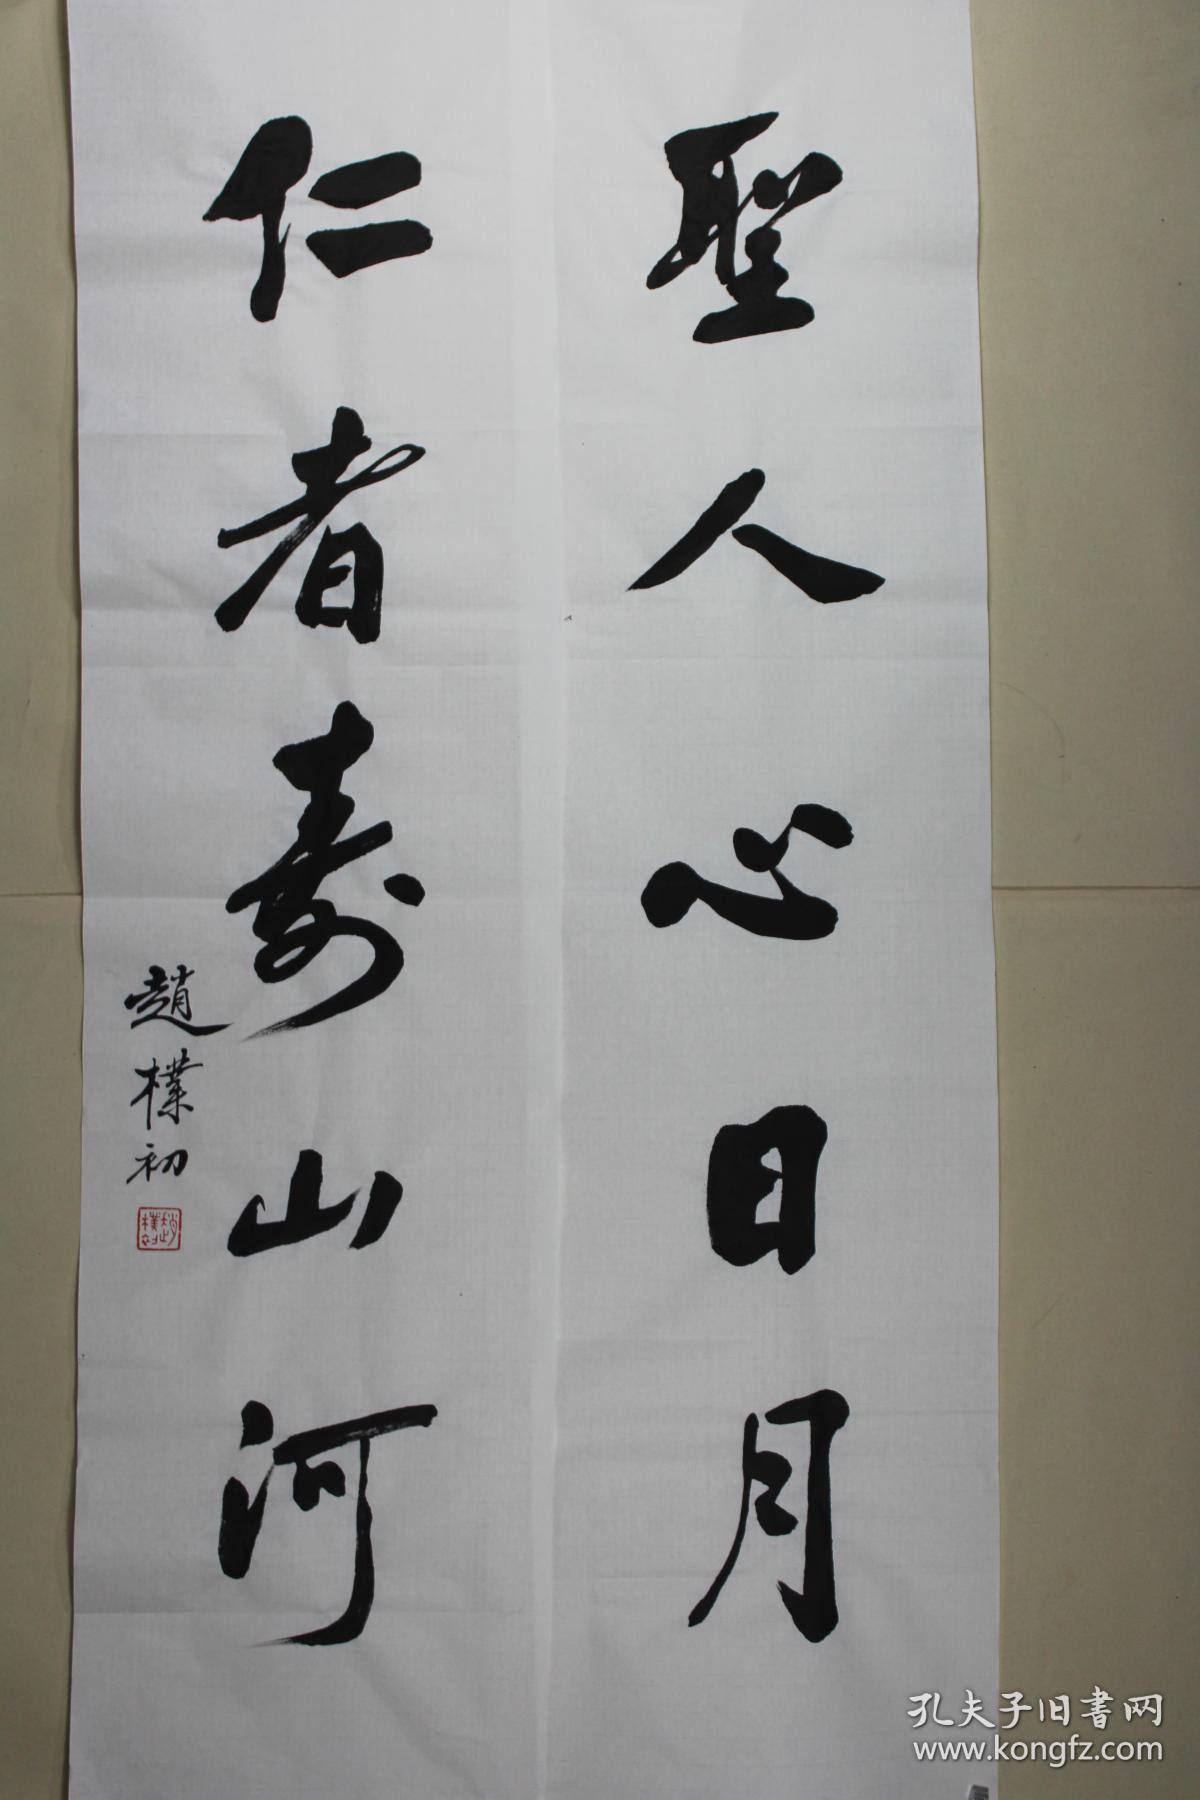 聖人心日月
仁者壽山河
趙樸初
趙樸初
孔夫子旧书网
www.kongfz.com